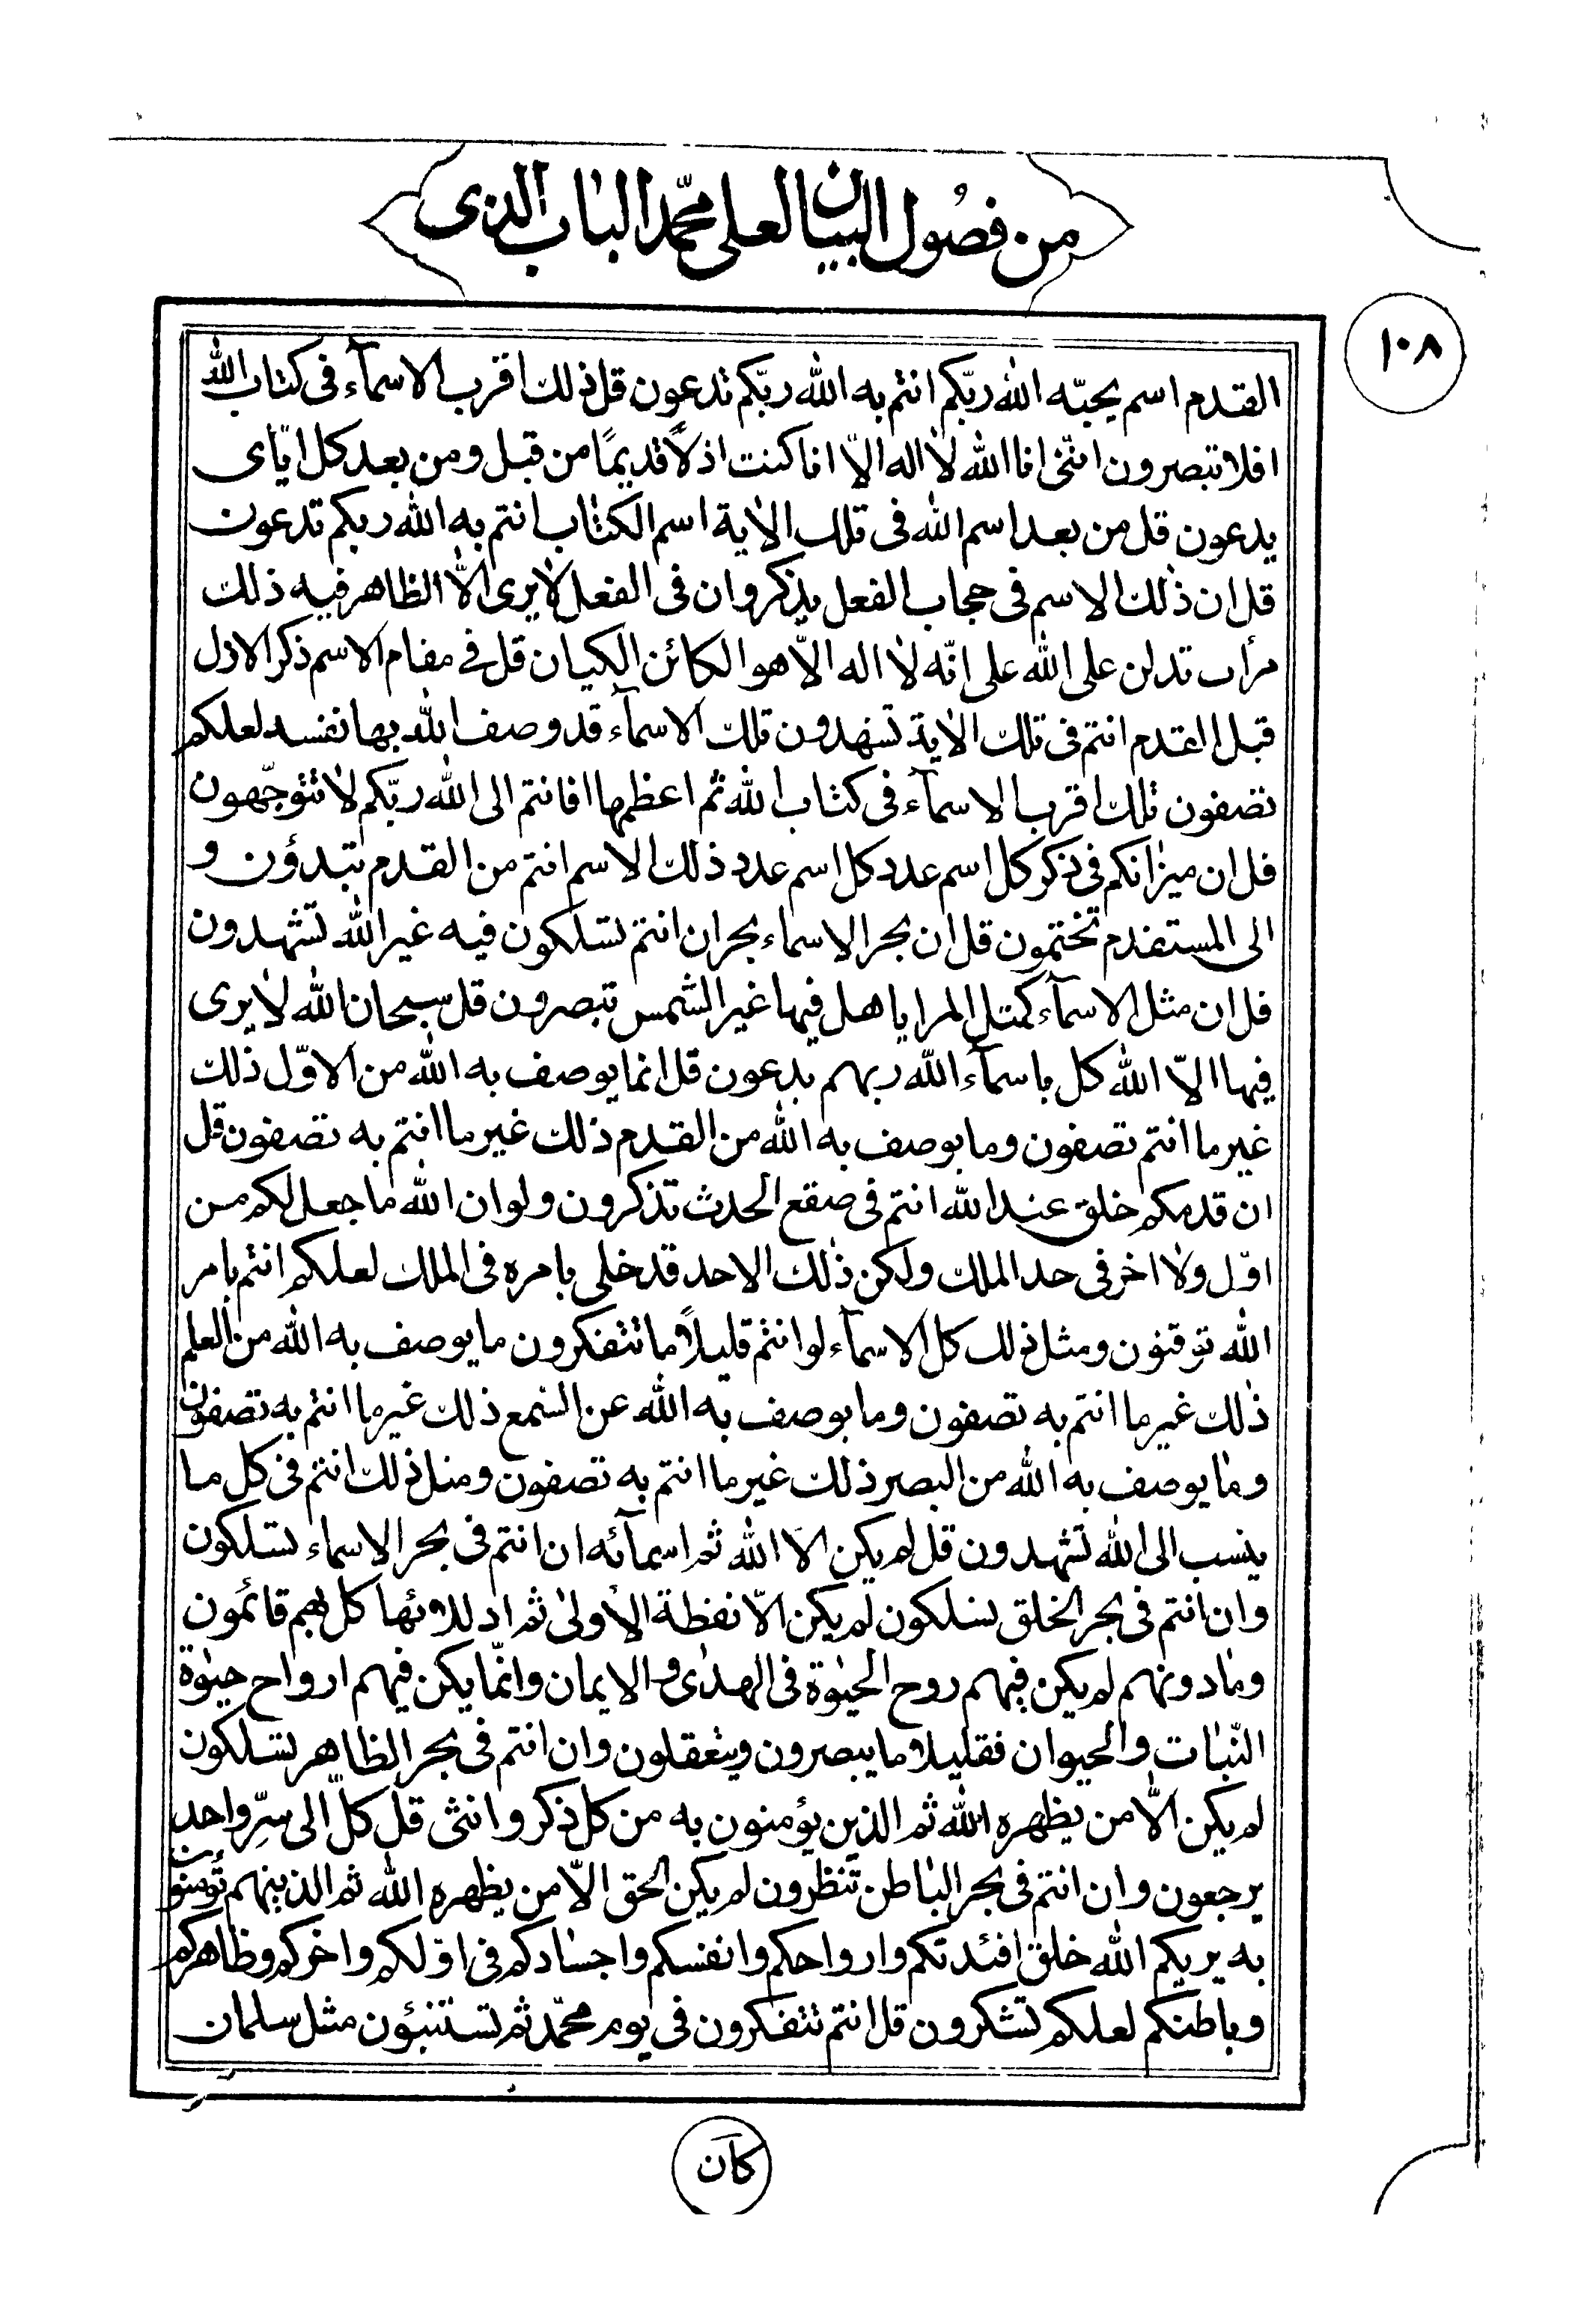 من فصول البيان العلى محمّد الباب الذى
١٠٨
القدم اسم يحبّه الله ربّكم انتم به الله ربّكم تدعون قل ذلك اقرب الاسمآء فى كتاب الله
افلا تبصرون اننى انا الله لا اله الّا انا كنت اذلاً قديمًا من قبل ومن بعد كل ايّاى
يدعون قل من بعد اسم الله فى تلك الاية اسم الكتاب انتم به الله ربكم تدعون
قل ان ذلك الاسم فى حجاب الفعل يذكر وان فى الفعل لا يرى الّا الظاهر فيه ذلك
مرأت تدلن على الله على انّه لا اله الّا هو الكائن الكيان قل فى مقام الاسم ذكر الازل
قبل القدم انتم فى تلك الاية تشهدون تلك الاسمآء قد وصف الله بها نفسه لعلكم
تصفون تلك اقرب الاسمآء فى كتاب الله ثم اعظمها افانتم الى الله ربّكم لا تتوجّهون
قل ان ميزانكم فى ذكر كل اسم عدد كل اسم عدد ذلك الاسم انتم من القدم تبتدؤن و
الى المستقدم تختمون قل ان بحر الاسماء بحر ان انتم تسلكون فيه غير الله تشهدون
قل ان مثل الاسمآء كمثل المرايا هل فيها غير الشمس تبصرون قل سبحان الله لا يرى
فيها الّا الله كل باسمآء الله ربهم يدعون قل انما يوصف به الله من الاوّل ذلك
غير ما انتم تصفون وما يوصف به الله من القدم ذلك غير ما انتم به تصفون قل
ان قدمكم خلق عند الله انتم فى صقع الحدث تذكرون ولو ان الله ما جعل لكم من
اوّل ولا اخر فى حد الملك ولكن ذلك الاحد قد خلى بامره فى الملك لعلكم انتم بامر
الله توقنون ومثل ذلك كل الاسمآء لو انتم قليلاً ما تتفكرون ما يوصف به الله من العلم
ذلك غير ما انتم به تصفون وما يوصف به الله عن السمع ذلك غير ما انتم به تصفون
وما يوصف به الله من البصر ذلك غير ما انتم به تصفون ومثل ذلك انتم فى كل ما
ينسب الى الله تشهدون قل لم يكن الا الله ثم اسمآئه ان انتم فى بحر الاسماء تسلكون
وان انتم فى بحر الخلق تسلكون لم يكن الّا نقطة الاولى ثم ادلائها كل بهم قائمون
وما دونهم لم يكن فيهم روح الحيوة فى الهدى و الايمان وانّما يكن فيهم ارواح حيوة
النّبات والحيوان فقليلا ما يبصرون ويتعقلون وان انتم فى بحر الظاهر تسلكون
لم يكن الّا من يظهره الله ثم الذين يؤمنون به من كل ذكر وانثى قل كلّ الى سرّ واحد
يرجعون وان انتم فى بحر الباطن تنظرون لم يكن الحق الّا من يظهره الله ثم الذينهم تؤمنون
به يريكم الله خلق افئدتكم وارواحكم وانفسكم واجسادكم فى اوّلكم واخركم وظاهركم
وباطنكم لعلكم تشكرون قل انتم تتفكرون فى يوم محمّد ثم تستنبؤن مثل سلمان
كان